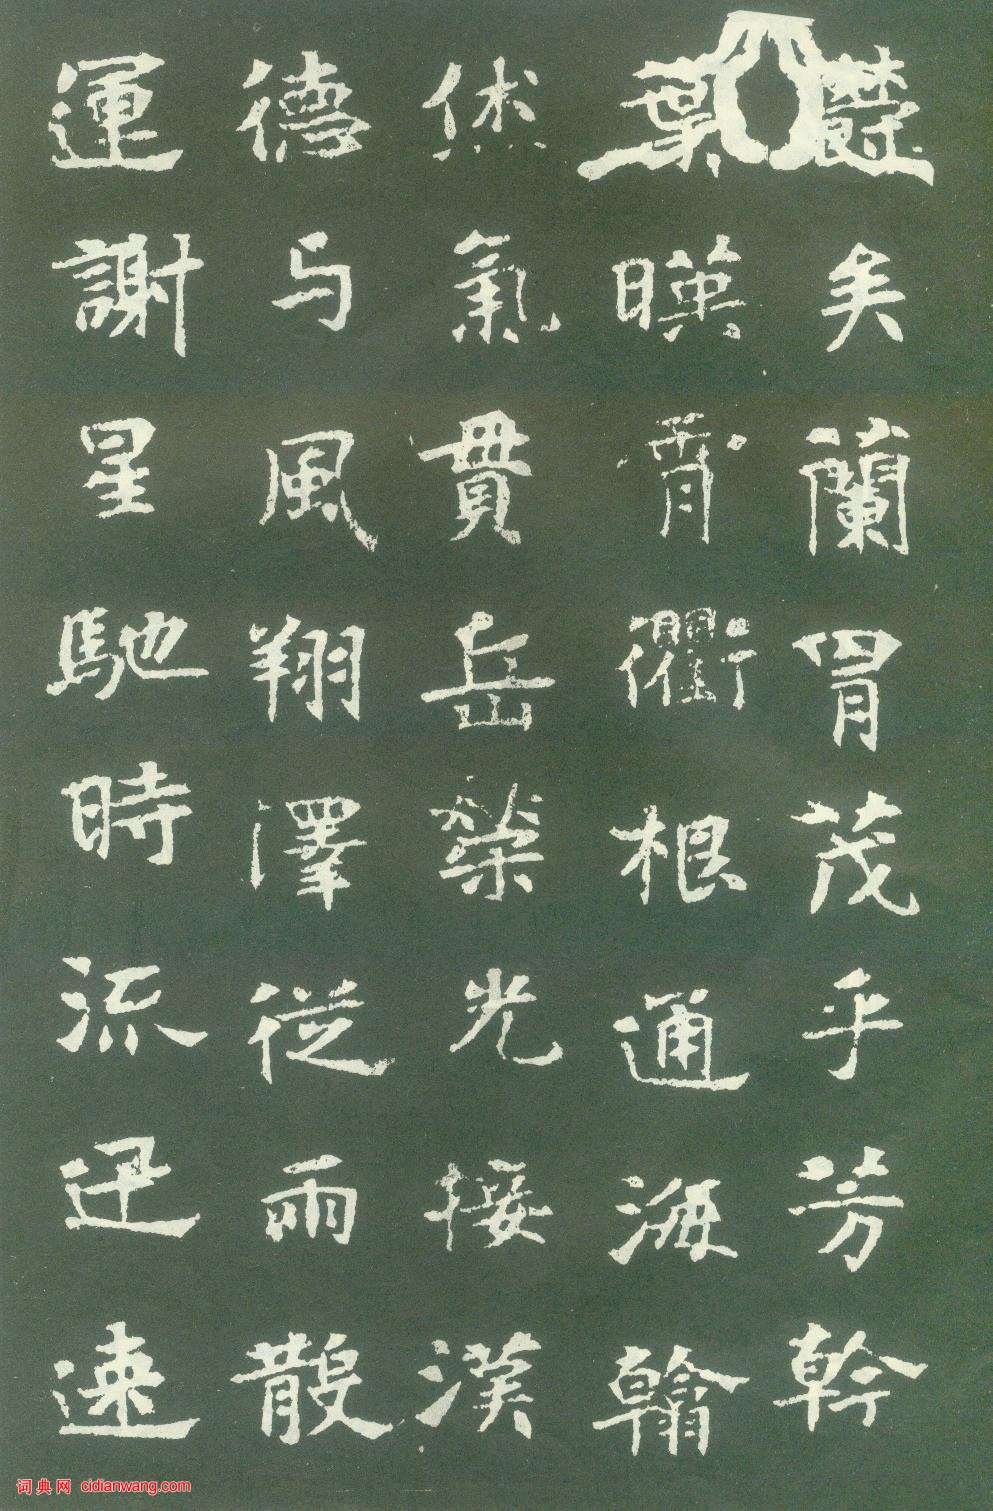 鬱矣蘭胄茂乎芳幹
葉暎霄衢根通海翰
休氣貫岳榮光接漢
德与風翔澤從雨散
運謝星馳時流迅速
词典网 cidianwang.com